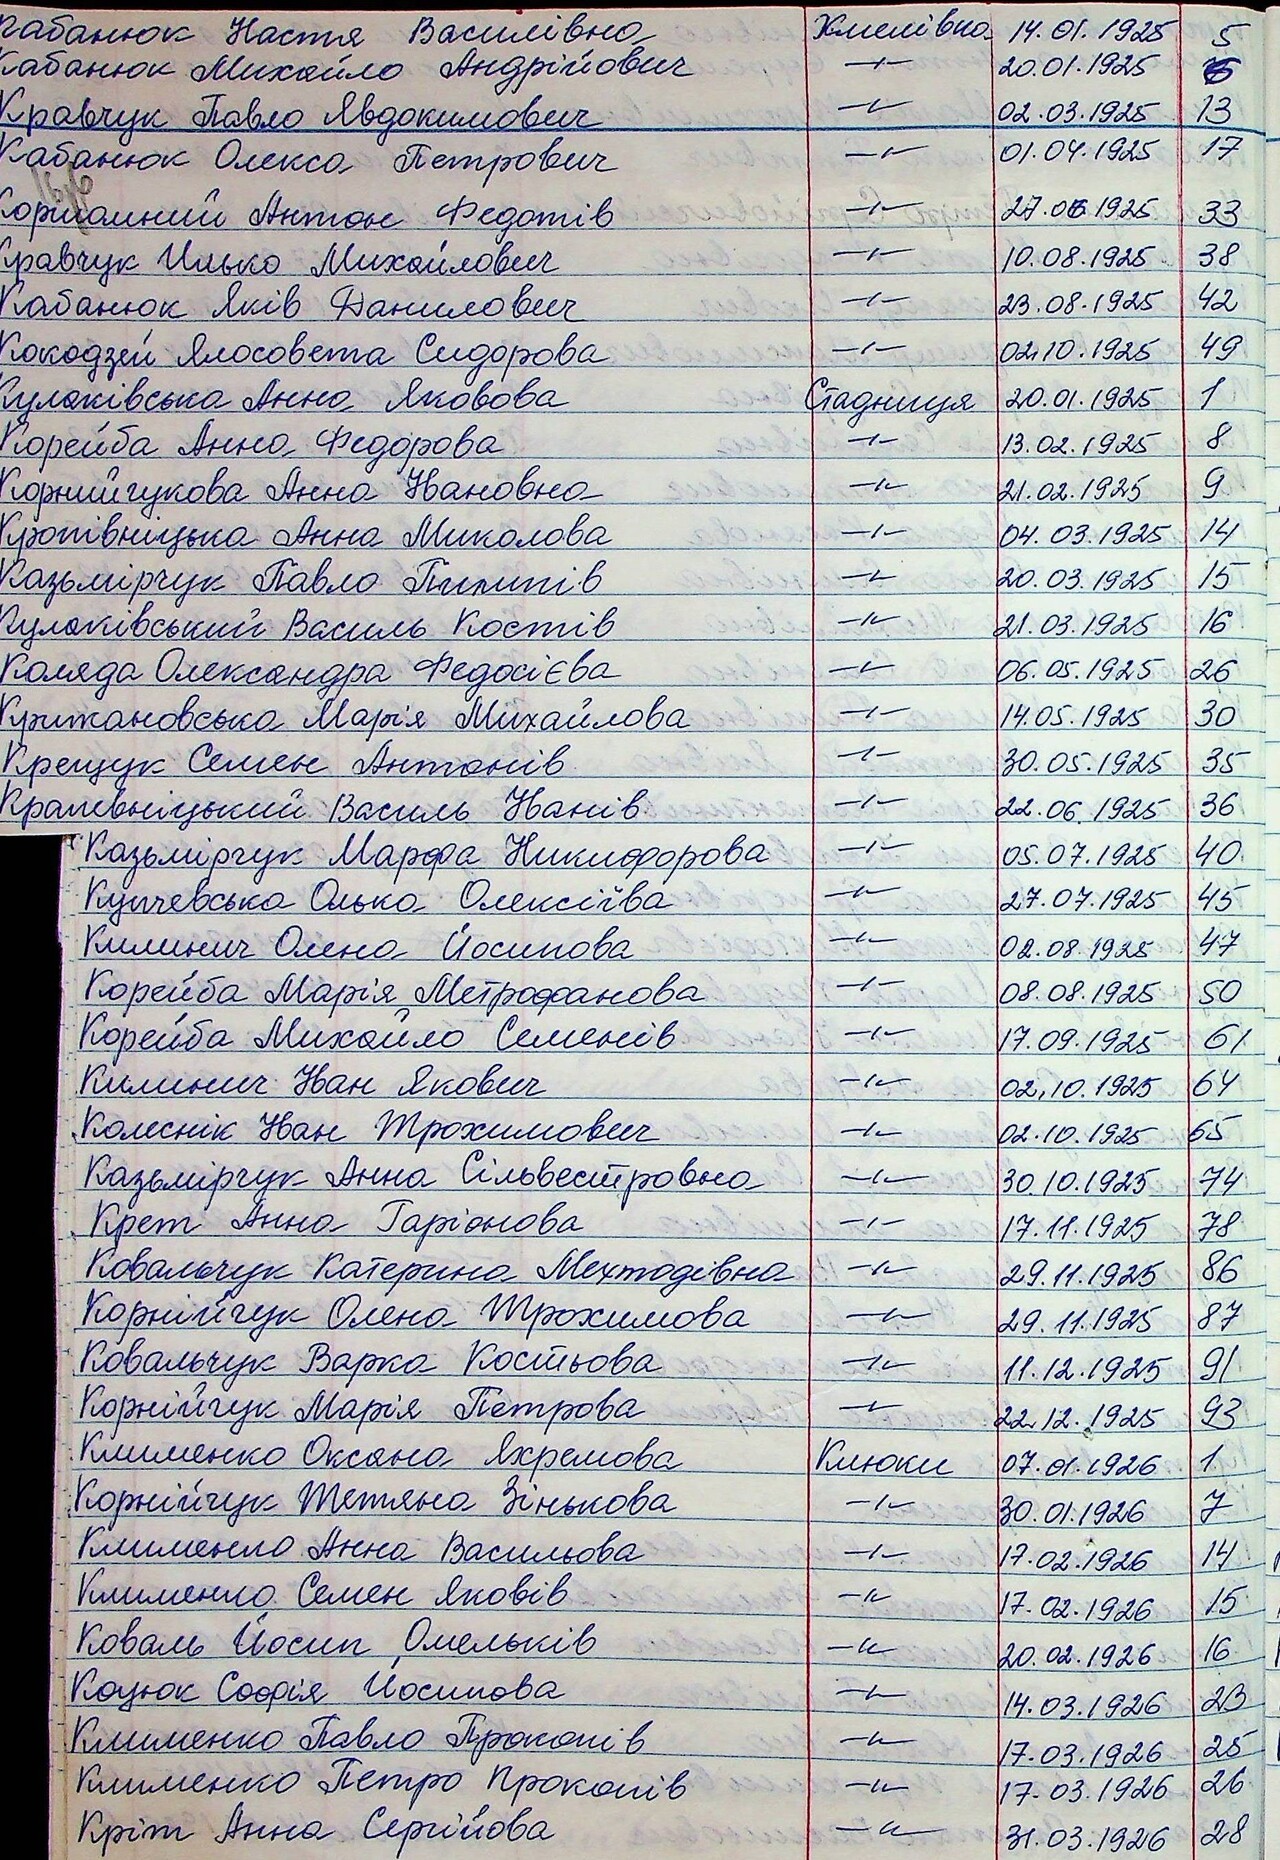 Кабанюк Настя Василівна Хмелівка 14.01.1925 5
Кабанюк Михайло Андрійович —"— 20.01.1925 6
Кравчук Павло Явдокимович —"— 02.03.1925 13
Кабанюк Олекса Петрович —"— 01.04.1925 17
Антон Федотів —"— 27.06.1925 33
Кравчук Илько Михайлович —"— 10.08.1925 38
Кабанюк Яків Данилович —"— 23.08.1925 42
Кокодзей Ялосовета Сидорова —"— 02.10.1925 49
Кулаківська Анна Яковова Стадниця 20.01.1925 1
Корейба Анна Федорова —"— 13.02.1925 8
Корнийчукова Анна Івановна —"— 21.02.1925 9
Кропівніцька Анна Миколова —"— 04.03.1925 14
Казьмірчук Павло Пилипів —"— 20.03.1925 15
Кулаківський Василь Костів —"— 21.03.1925 16
Коляда Олександра Федосієва —"— 06.05.1925 26
Крижановська Марія Михайлова —"— 14.05.1925 30
Крещук Семен Антонів —"— 30.05.1925 35
Крапевніцький Василь Іванів —"— 22.06.1925 36
Казьмірчук Марфа Никифорова —"— 05.07.1925 40
Купчевська Олька Олексіїва —"— 27.07.1925 45
Килинич Олена Йосипова —"— 02.08.1925 47
Корейба Марія Метрофанова —"— 08.08.1925 50
Корейба Михайло Семенів —"— 17.09.1925 61
Килинич Іван Якович —"— 02.10.1925 64
Колеснік Іван Трохимович —"— 02.10.1925 65
Казьмірчук Анна Сільвестровна —"— 30.10.1925 74
Крет Анна Гаріонова —"— 17.11.1925 78
Ковальчук Катерина Мехтодівна —"— 29.11.1925 86
Корнійчук Олена Трохимова —"— 29.11.1925 87
Ковальчук Варка Костьова —"— 11.12.1925 91
Корнійчук Марія Петрова —"— 22.12.1925 93
Клименко Оксана Яхремова Клюки 07.01.1926 1
Корнійчук Тетяна Зінькова —"— 30.01.1926 7
Клименко Анна Васильова —"— 17.02.1926 14
Клименко Семен Яковів —"— 17.02.1926 15
Коваль Йосип Омельків —"— 20.02.1926 16
Коцюк Софія Йосипова —"— 14.03.1926 23
Клименко Павло Прокопів —"— 17.03.1926 25
Клименко Петро Прокопів —"— 17.03.1926 26
Кріт Анна Сергійова —"— 31.03.1926 28